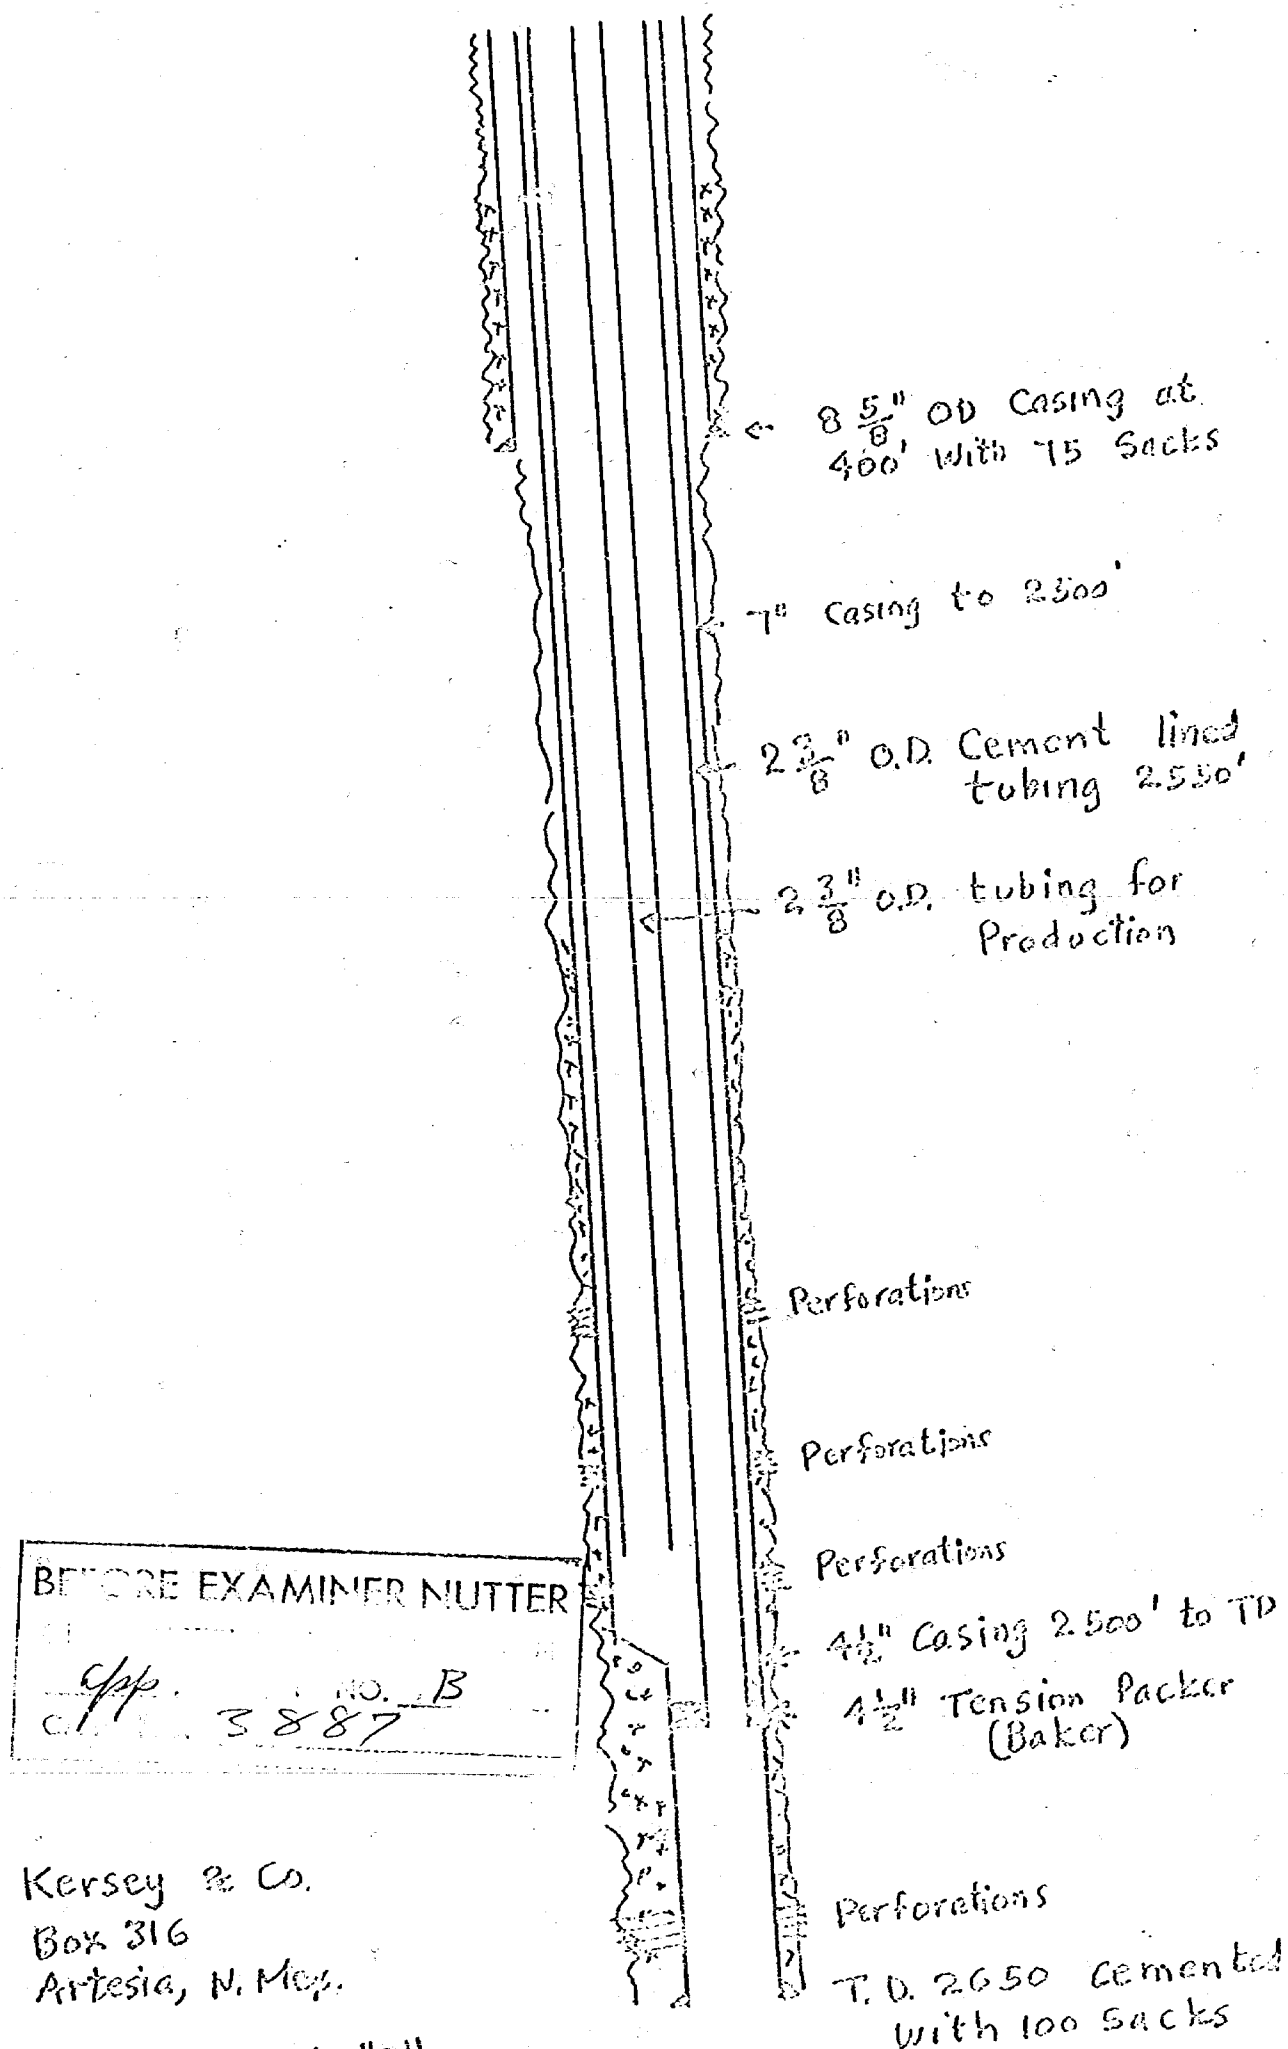 8 5/8" OD Casing at
400' With 75 Sacks
7" Casing to 2500'
2 3/8" O.D. Cement lined
tubing 2550'
2 3/8" O.D. tubing for
Production
Perforations
Perforations
Perforations
4 1/2" Casing 2500' to TD
4 1/2" Tension Packer
(Baker)
Perforations
T.D. 2650 cemented
with 100 Sacks
BEFORE EXAMINER NUTTER
App. NO. B
3887
Kersey & Co.
Box 316
Artesia, N. Mex.